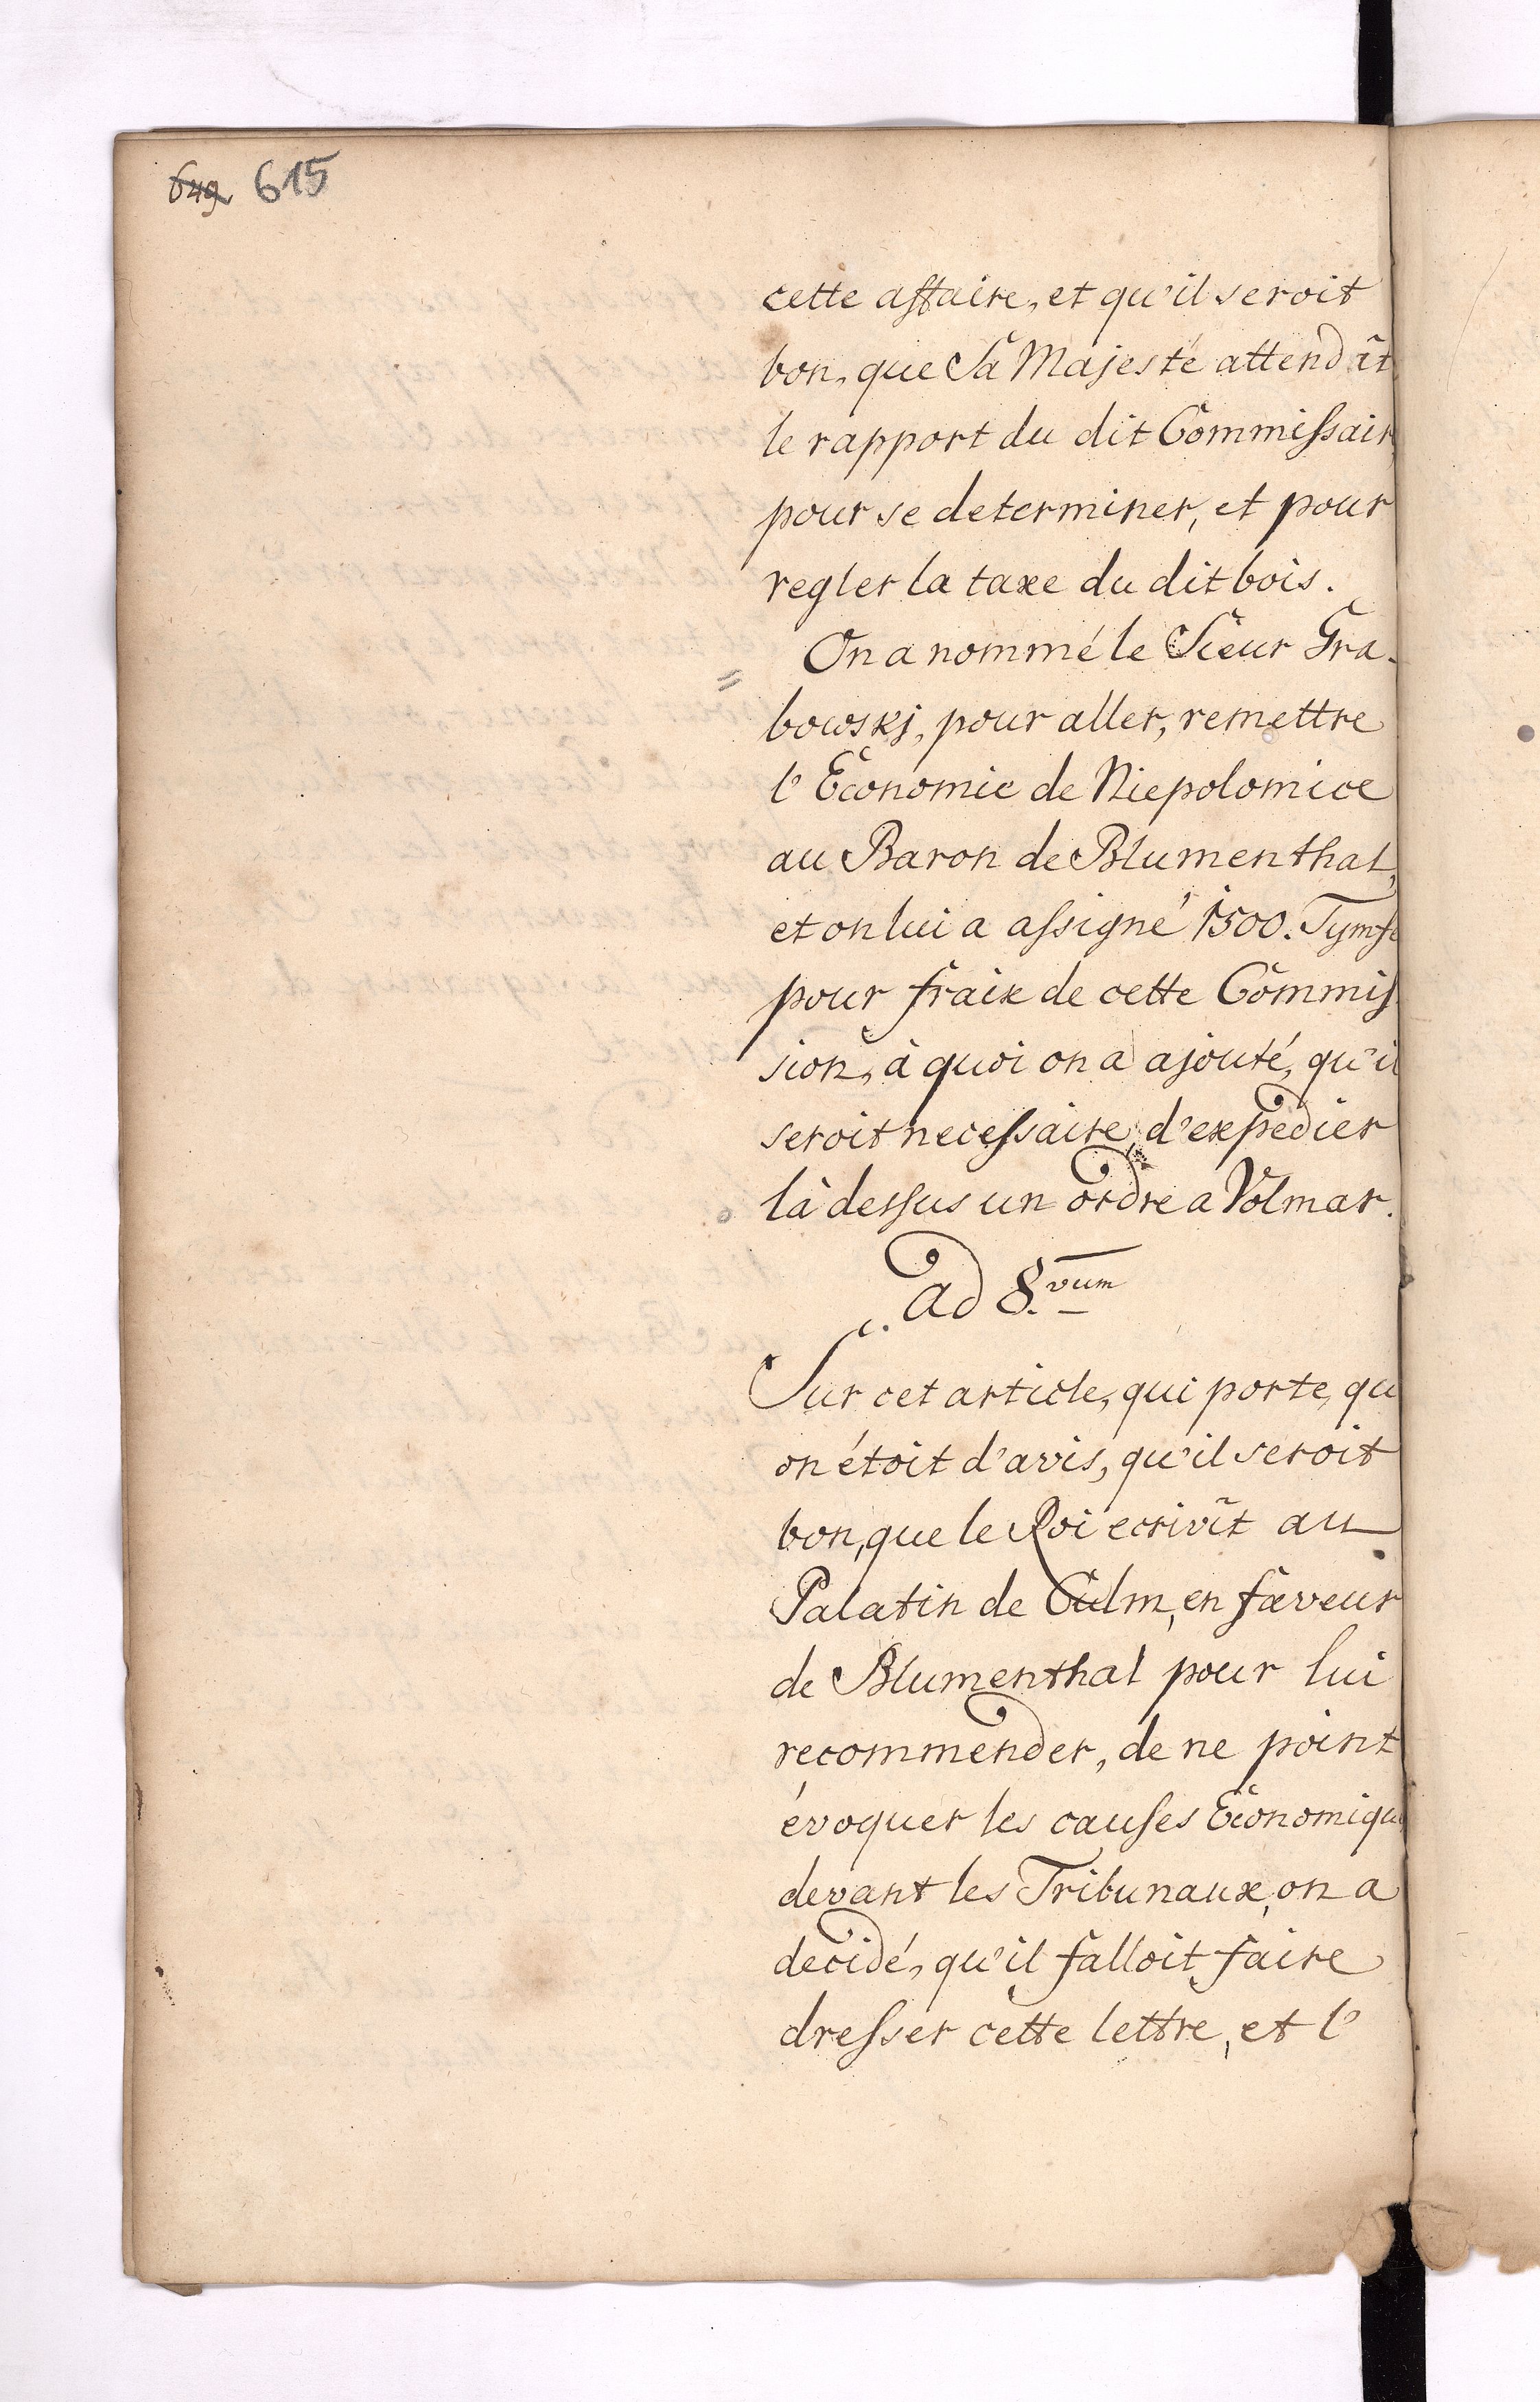 649 615
cette affaire, et qu'il seroit
bon, que Sa Majesté attendât
le rapport du dit Commissair
pour se determiner, et pour
regler la taxe du dit bois.
On a nommé le Sieur Gra-
bowskj, pour aller, remettre
l'Economie de Niepolomice
au Baron de Blumenthal,
et on lui a assigné 1500. Tymf
pour fraix de cette Commis
sion, à quoi on a ajouté, qu'il
seroit necessaire, d'expedier
là dessus un ordre a Volmar.
ad 8.vum
Sur cet article, qui porte, qu
on étoit d'avis, qu'il seroit
bon, que le Roi ecrivît au
Palatin de Culm, en faveur
de Blumenthal pour lui
recommender, de ne point
évoquer les causes Economiqu
devant les Tribunaux, on a
decidé, qu'il falloit faire
dresser cette lettre, et l'